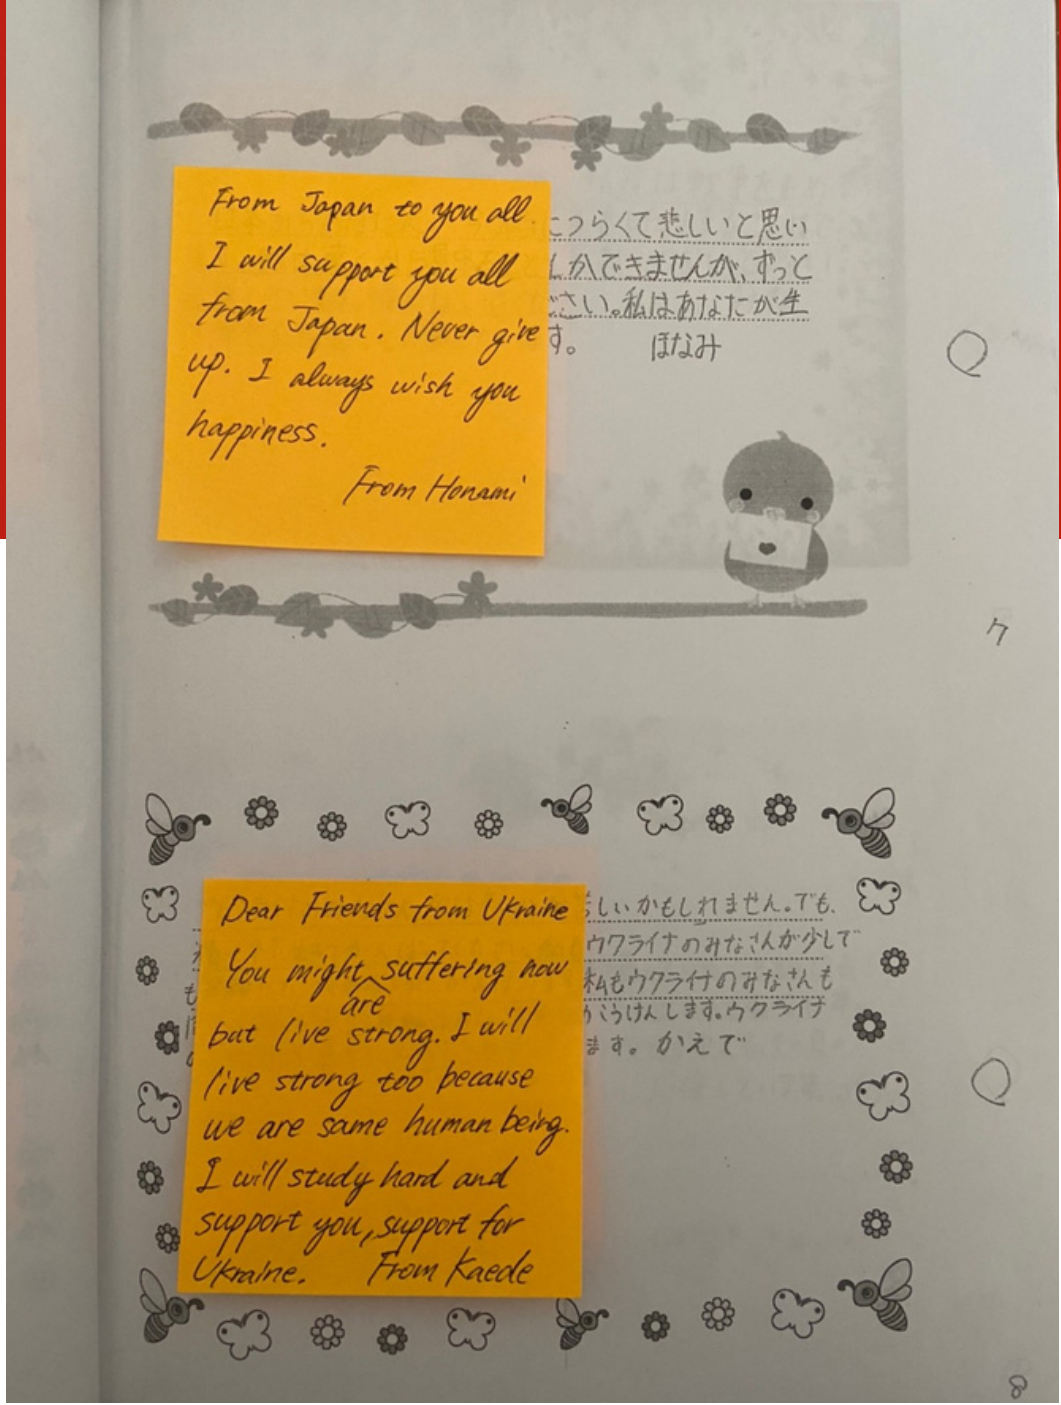 From Japan to you all
I will support you all
from Japan. Never give
up. I always wish you
happiness.
From Honami
つらくて悲しいと思い
かできませんが、ずっと
ださい。私はあなたが生
す。 ほなみ
7
Dear Friends from Ukraine
You might suffering now
are
but live strong. I will
live strong too because
we are same human being.
I will study hard and
support you, support for
Ukraine. From Kaede
しいかもしれません。でも、
ウクライナのみなさんが少しで
も
私もウクライナのみなさんも
こうけんします。ウクライナ
ます。かえで
8